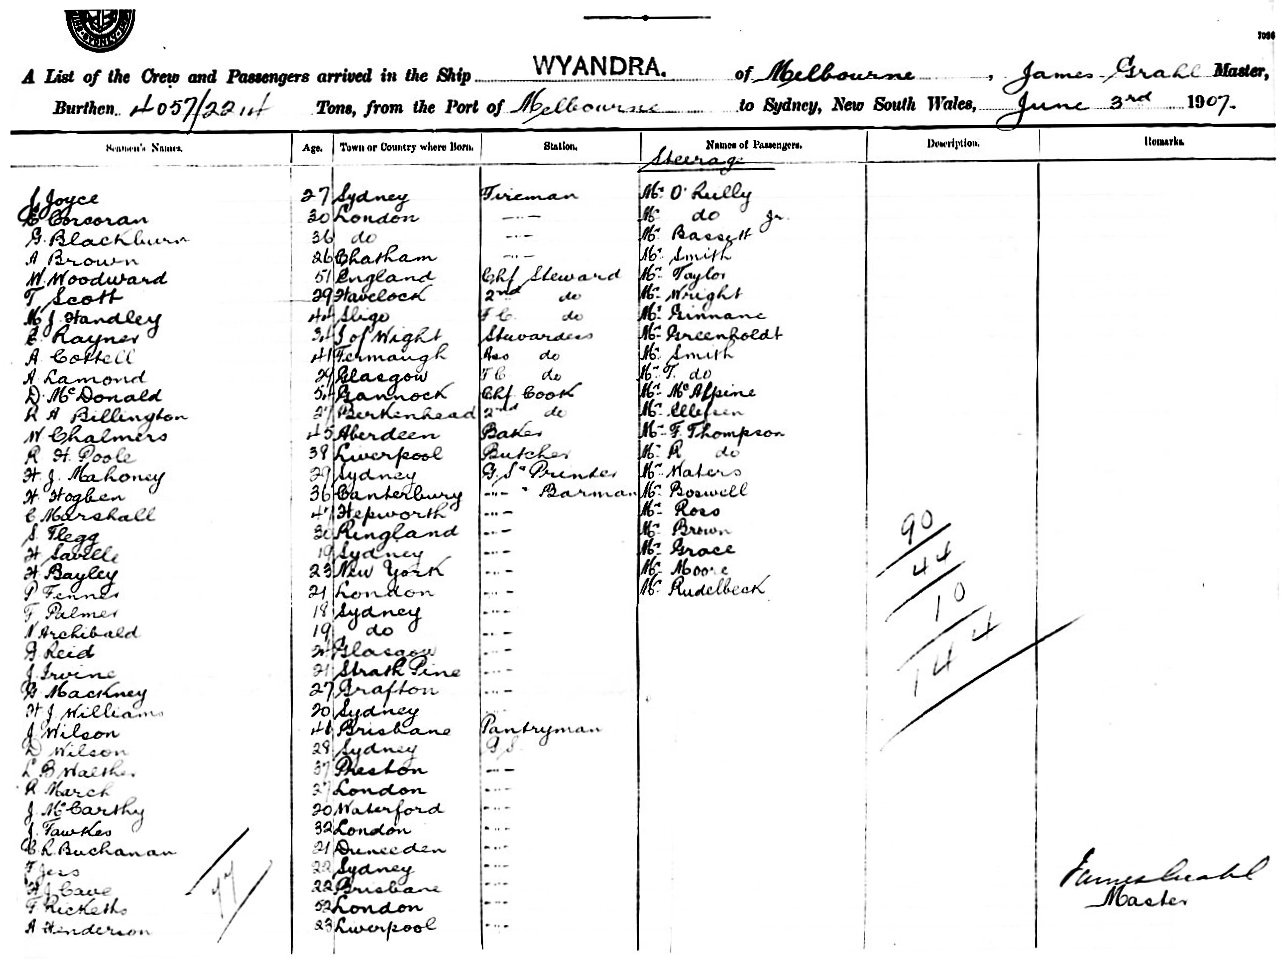 SYDNEY
7096
A List of the Crew and Passengers arrived in the Ship WYANDRA. of Melbourne, James Grahl Master,
Burthen 4057/2214 Tons, from the Port of Melbourne to Sydney, New South Wales, June 3rd 1907.
Seamen's Names. Age. Town or Country where Born. Station. Names of Passengers. Description. Remarks.
Steerage
J Joyce 27 Sydney Fireman Mr O'Rully
E Corcoran 30 London -..- Mr do Jr.
G. Blackburn 36 do -..- Mr Bassett
A Brown 26 Chatham -..- Mr Smith
W. Woodward 51 England Chf Steward Mr Taylor
T Scott 29 Havelock 2nd do Mr Wright
M J Handley 44 Sligo F C do Mr Ginnane
E. Rayner 34 I of Wight Stewardess Mr Greenholdt
A Cottell 41 Fermaugh Ass do Mr Smith
A Lamond 29 Glasgow F C do Mr T. do
D McDonald 54 Gannock Chf Cook Mr McAlpine
R A Billington 27 Berkenhead 2nd do Mr
W Chalmers 45 Aberdeen Baker Mr F. Thompson
R H Poole 38 Liverpool Butcher Mr R do
H. J. Mahoney 29 Sydney G. S. Printer Mr Waters
H Hogben 36 Canterbury -..- " Barman Mr Boswell
C Marshall 47 Hepworth -..- Mr Ross
S. Flegg 30 Ringland -..- Mr Brown
H Saville 19 Sydney -..- Mr Grace
H Bayley 23 New York -..- Mr Moore
P Fenner 21 London -..- Mr Rudelbeck
F Palmer 18 Sydney -..-
N Archibald 19 do -..-
G Reid Glasgow -..-
J. Irvine 21 Strath Pine -..-
G Mackney 27 Grafton -..-
H J Williams 20 Sydney -..-
J Wilson 41 Brisbane Pantryman
D Wilson 28 Sydney G S
L B Walther 37 Preston -..-
R March 27 London -..-
J McCarthy 20 Waterford -..-
J. Fawkes 32 London -..-
C R Buchanan 21 Duneeden -..-
F Jess 22 Sydney -..-
H J Cave 22 Brisbane -..-
F Ricketts 52 London -..-
A Henderson 23 Liverpool -..-
77
90
44
10
144
James Grahl
Master